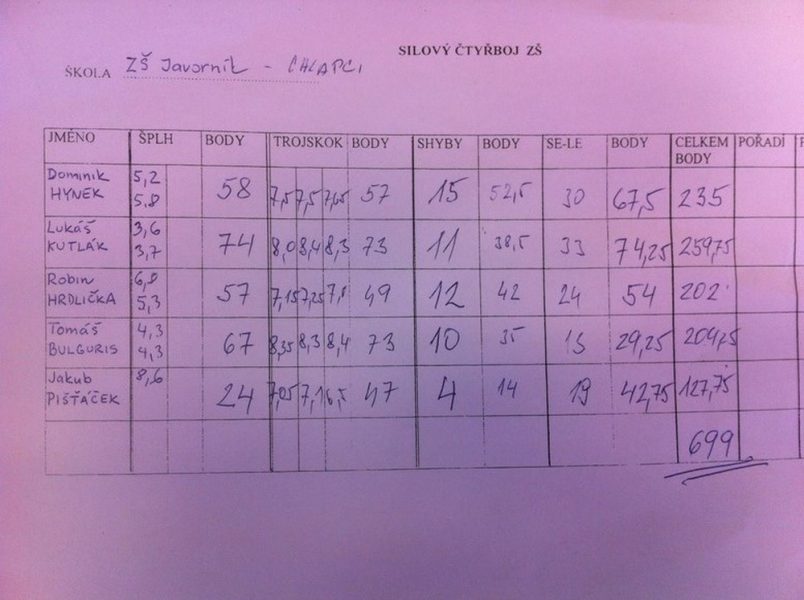 SILOVÝ ČTYŘBOJ ZŠ
ŠKOLA ZŠ Javorník - CHLAPCI
JMÉNO ŠPLH BODY TROJSKOK BODY SHYBY BODY SE-LE BODY CELKEM BODY POŘADÍ
Dominik HYNEK 5,2 5,8 58 7,5 7,5 7,65 57 15 52,5 30 67,5 235
Lukáš KUTLÁK 3,6 3,7 74 8,0 8,4 8,3 73 11 38,5 33 74,25 259,75
Robin HRDLIČKA 6,8 5,3 57 7,15 7,25 49 12 42 24 54 202
Tomáš BULGURIS 4,3 4,3 67 8,35 8,3 8,4 73 10 35 29,25 204,25
Jakub PIŠŤÁČEK 8,6 24 7,05 7,1 6,5 47 4 14 19 42,75 127,75
699